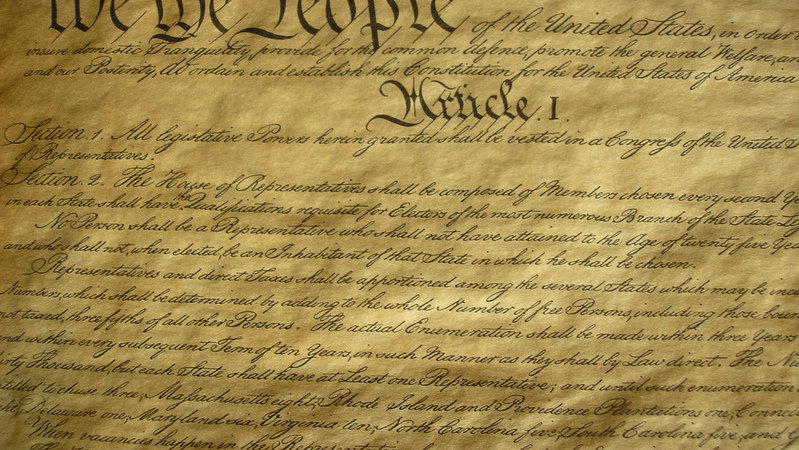 We the People of the United States, in order
insure domestic Tranquility, provide for the common defence, promote the general Welfare, an
and our Posterity, do ordain and establish this Constitution for the United States of America
Article. I.
Section. 1. All legislative Powers herein granted shall be vested in a Congress of the United
of Representatives.
Section. 2. The House of Representatives shall be composed of Members chosen every second Ye
in each State shall have the Qualifications requisite for Electors of the most numerous Branch of the State Leg
No Person shall be a Representative who shall not have attained to the Age of twenty five Yea
and who shall not, when elected, be an Inhabitant of that State in which he shall be chosen.
Representatives and direct Taxes shall be apportioned among the several States which may be inc
Numbers, which shall be determined by adding to the whole Number of free Persons, including those boun
not taxed, three fifths of all other Persons. The actual Enumeration shall be made within three Years
nd within every subsequent Term of ten Years, in such Manner as they shall by Law direct. The Nu
hirty Thousand, but each State shall have at Least one Representative; and until such enumeration
titled to chuse three, Massachusetts eight, Rhode Island and Providence Plantations one, Connec
ht, Delaware one, Maryland six, Virginia ten, North Carolina five, South Carolina five, and G
When vacancies happen in the Representat